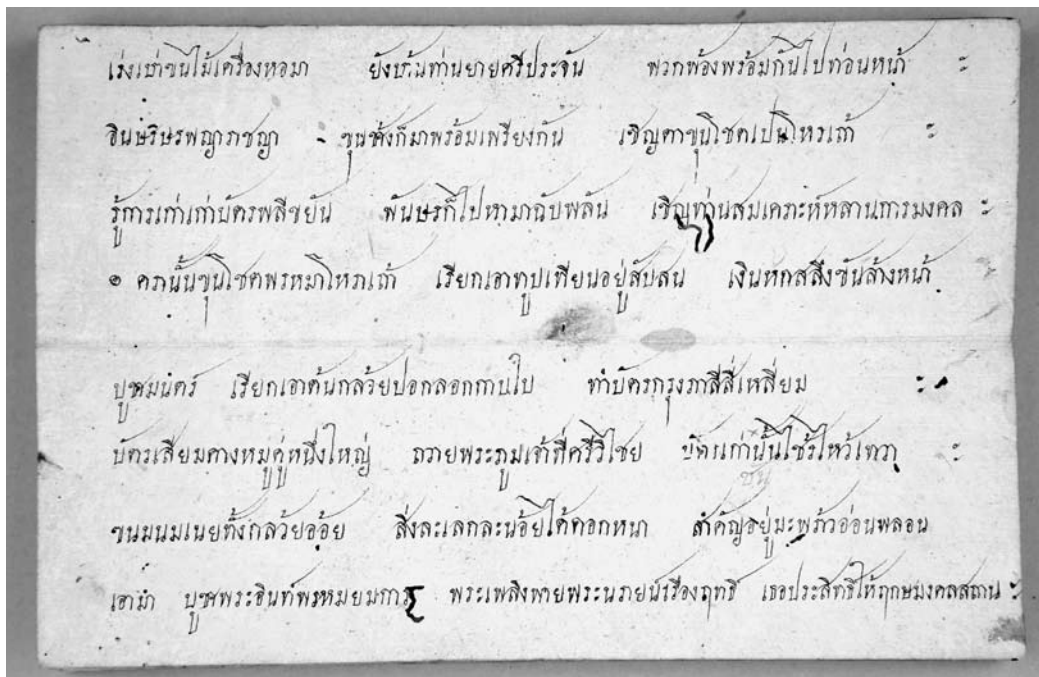 เร่งเขาขนไม้เครื่องหอมา ยังบ้านท่านยายศรีประจัน พวกพ้องพร้อมกันไปท่อนหน้า ฯ
อินษริษรพญาภาชญา ขุนช้างก็มาพร้อมเพรียงกัน เชิญตาขุนโชดเปนโหรเถ้า ฯ
รู้การเก่าเก่าบัตรพลีขยัน พันษรก็ไปหามาฉับพลัน เชิญท่านสมเคราะห์หลานการมงคล ฯ
๏ ครานั้นขุนโชดพรหมาโหราเถ้า เรียกเอาทูปเทียนอยู่สับสน เงินหกสลึงขันล้างหน้า
บูชามนตร์ เรียกเอาต้นกล้วยปอกลอกกานใบ ทำบัตรกรุงภาลีสี่เหลี่ยม ฯ
บัตรเสี้ยมคางหมูคู่หนึ่งใหญ่ ถวายพระภูมเจ้าที่ศรีวิไชย บัตรเก่านั้นใช้ไหว้เทวา ฯ
ชั้น
ขนมนมเนยทั้งกล้วยอ้อย สิ่งละเลกละน้อยใต้ดอกหนา สำคัญอยู่มะพร้าวอ่อนพลอน
เอามา บูชาพระอินท์พรหมยมการ พระเพลิงพายพระนรายน์เรืองฤทธิ เธอประสิทธิให้ฤกษมงคลสถาน ฯ